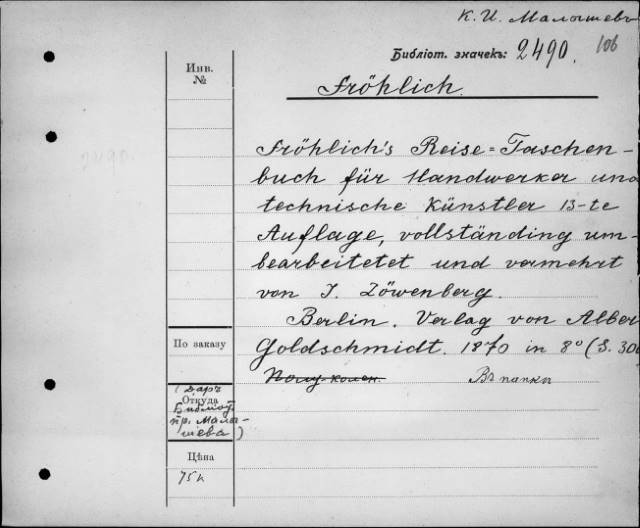 К. И. Малышевъ
Библіот. значекъ: 2490. 106
Инв.
№
Fröhlich.
2490.
Fröhlich's Reise=Taschen-
buch für Handwerker und
technische Künstler 13-te
Auflage, vollständing um-
bearbeitetet und vermehrt
von J. Löwenberg.
Berlin. Verlag von Alber
Goldschmidt. 1870 in 8° (S. 300
По заказу
Полу-колен. Въ папкп
Откуда
(Даръ
Библіот
пр. Малы-
шева)
Цѣна
75 к